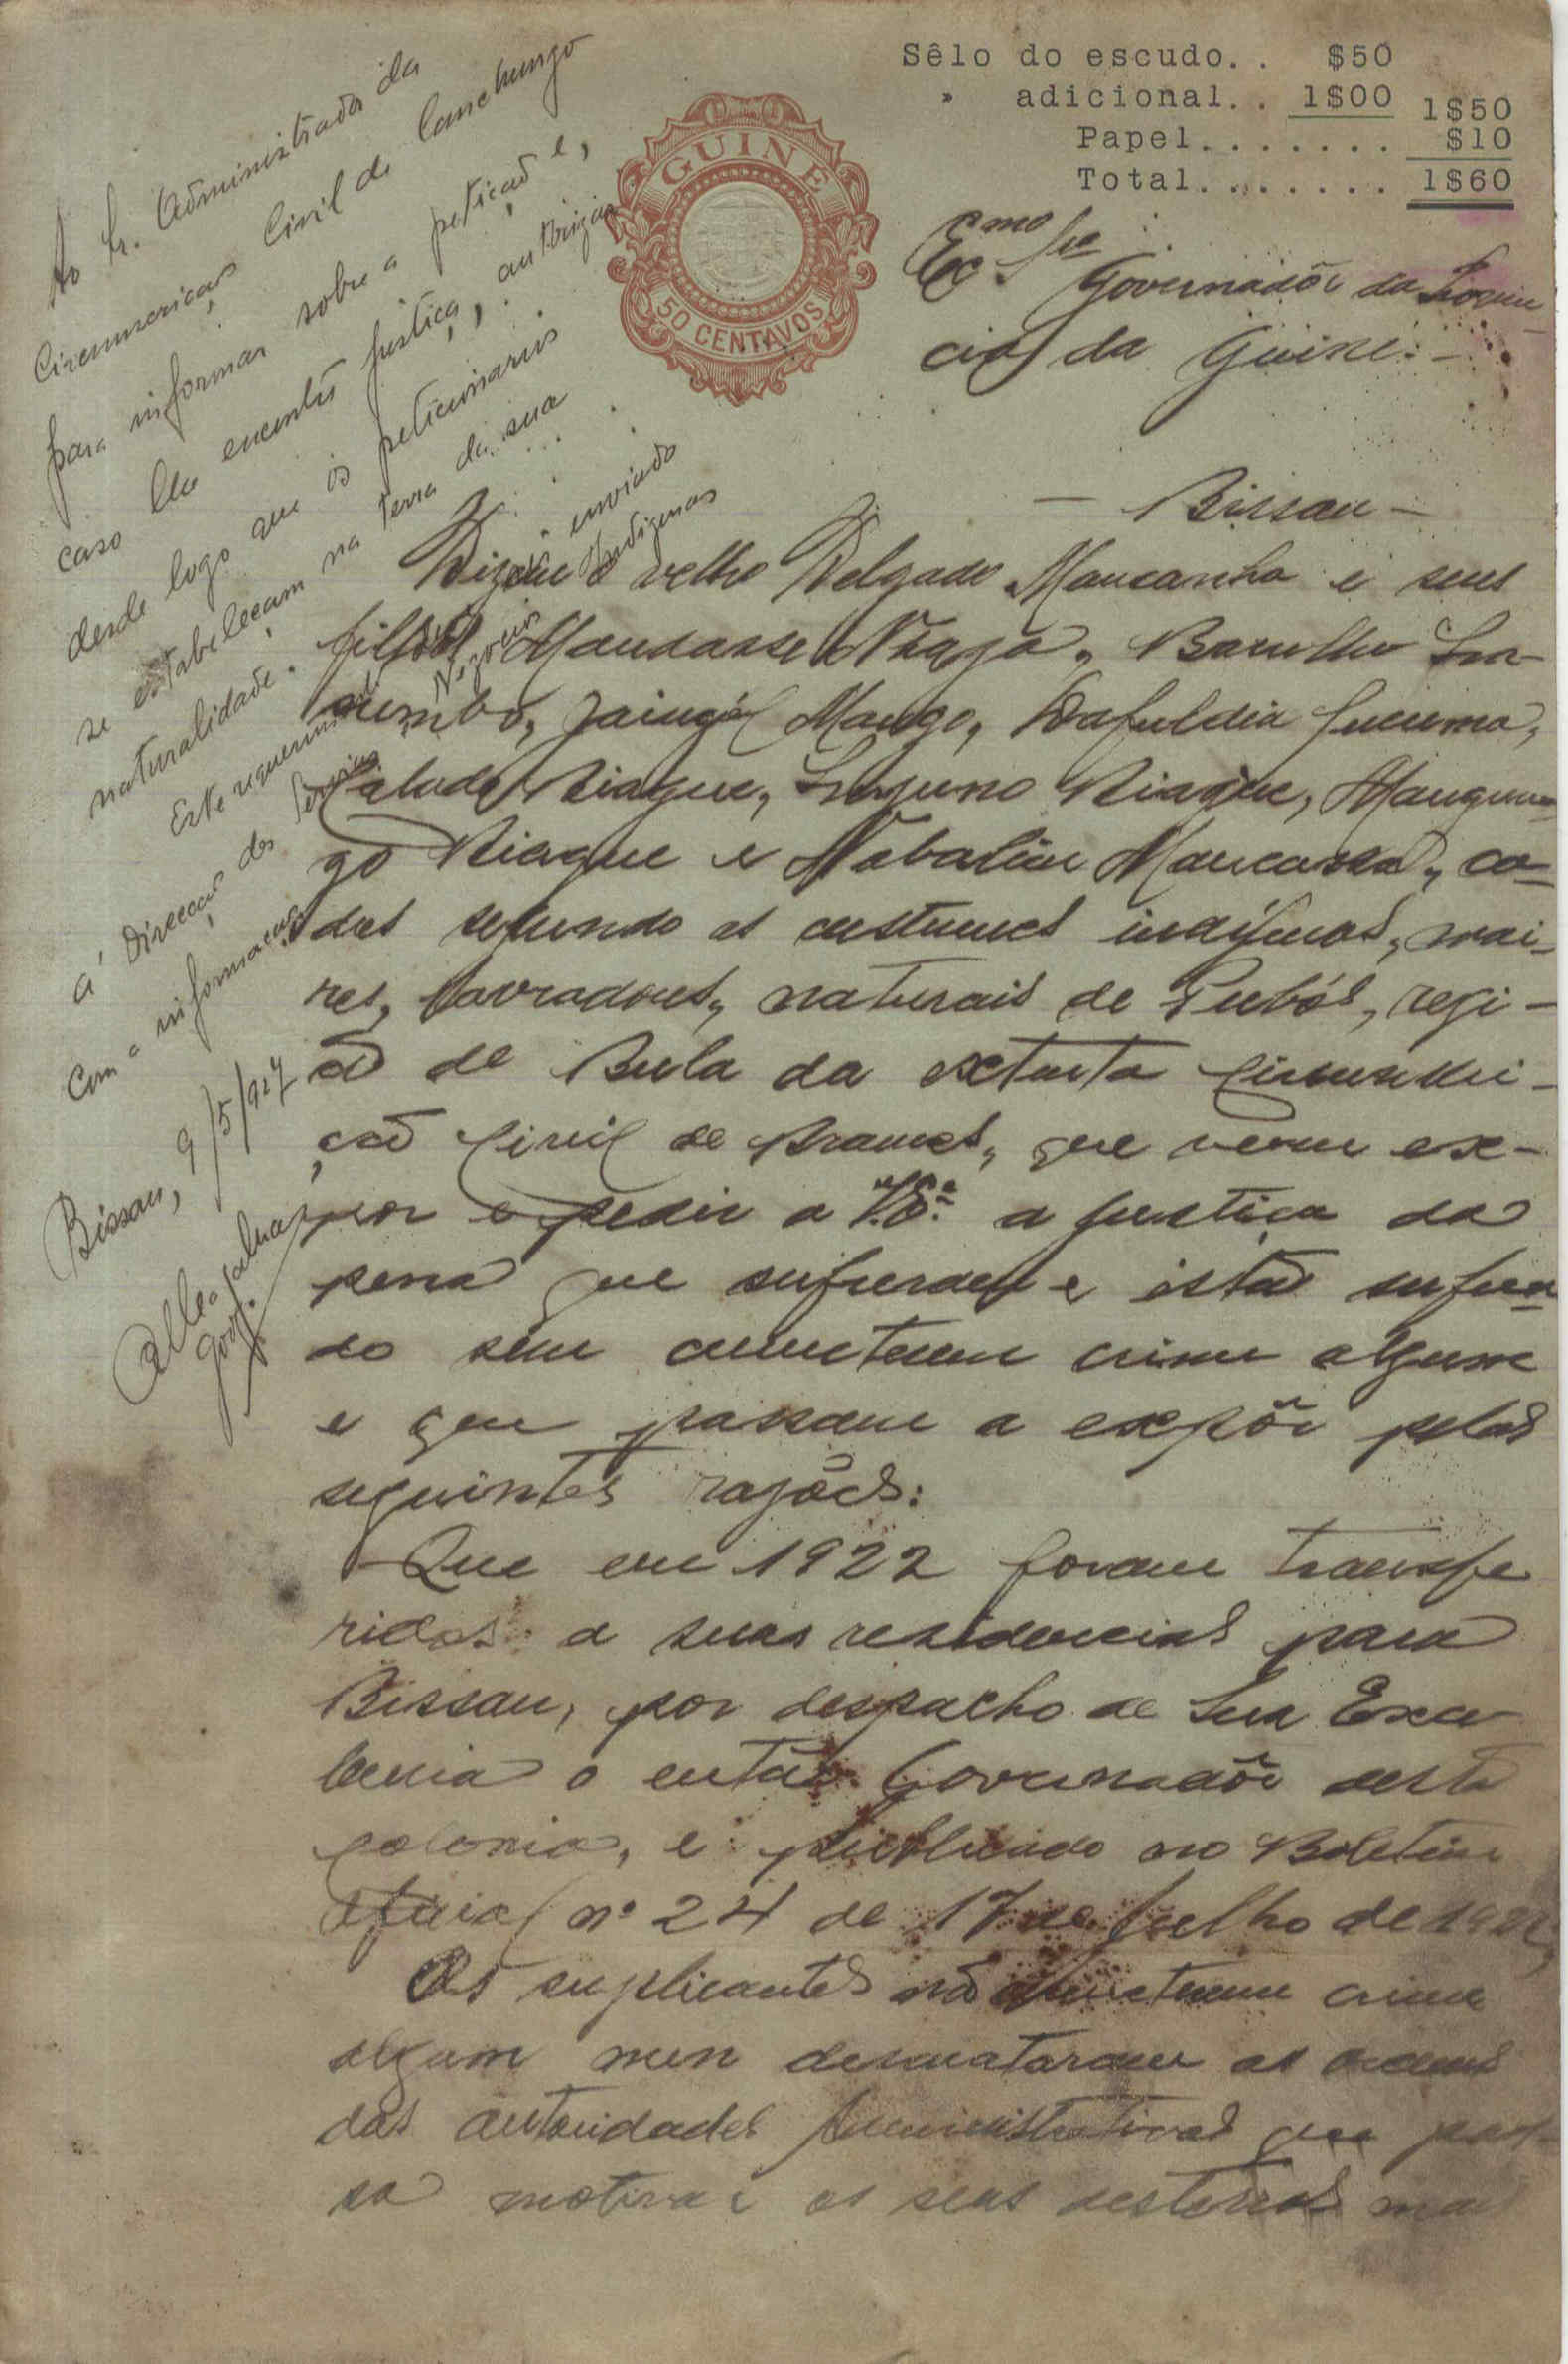 Sêlo do escudo.. $50
» adicional.. 1$00 1$50
Papel....... $10
Total....... 1$60
GUINÉ
50 CENTAVOS
Ao Sr. Administrador da
Circunscrição Civil de Canchungo
para informar sobre a petição e,
caso lhe encontre justiça, autorizar
desde logo que os peticionarios
se estabeleçam na terra da sua
naturalidade.
Este requerimento enviado
á Direcção dos Serviços Negocios Indigenas
com a informação.
Bissau, 9/5/927
Gov.
Exmo Sr Governadôr da Provin-
cia da Guiné:-
- Bissau -
Dizem o velho Delgado Mancanha e seus
filhos Mandasse Nhaga, Barulho
Mango,
Biague, Biague,
go Biague e Mancanha, ca-
dos segundo os costumes indígenas, mai-
res, lavradores, naturais de regi-
ão de Bula da extinta Circunscri-
ção Civil de Brames, que veem ex-
por e pedir a V. Ex.ª a justiça da
pena que sufreram e estão sufren-
do sem cometerem crime algum
e que passam a expôr pelas
seguintes razões:
Que em 1922 foram transfe
ridos a suas residencias para
Bissau, por despacho de Sua Exce
lencia o então Governadôr desta
colonia, e publicado no Boletim
Oficial nº 24 de 17 de Julho de 1922,
Os suplicantes não cometeram crime
algum nem desacataram as ordens
das autoridades Administrativas que pos-
sa motivar os seus desterros mas